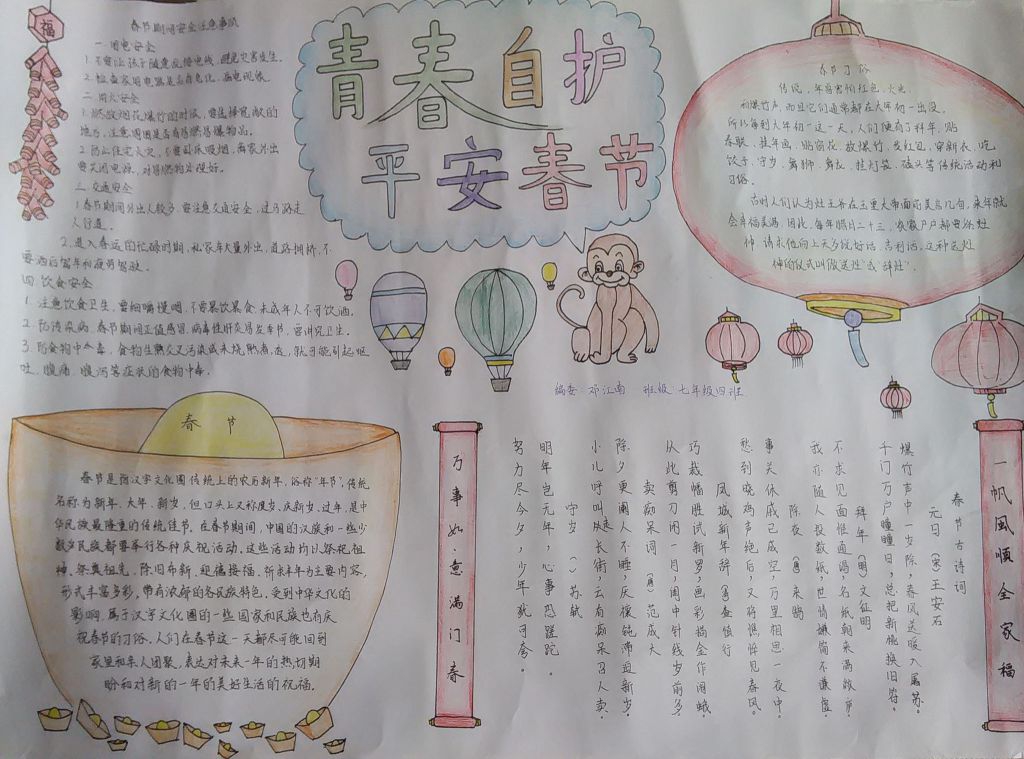 福
春节期间安全注意事项
一 用电安全
1. 不要让孩子随意玩接电线,避免灾害发生。
2. 检查家用电器是否老化、漏电现象。
二 用火安全
1. 燃放烟花爆竹的时候,要选择宽敞的
地方,注意周围是否有易燃易爆物品。
2 防止住宅火灾,不要卧床吸烟,离家外出
要关闭电源,对易燃物
三 交通安全
1 春节期间外出人较多,要注意交通安全,过马路走
人行道。
2.进入春运的忙碌时期,私家车大量外出,道路拥挤,不
要酒后驾车和疲劳驾驶。
四 饮食安全
1. 注意饮食卫生,要细嚼慢咽,不要暴饮暴食,未成年人不可饮酒。
2. 防传染病,春节期间正值感冒、病毒性肝炎易发季节,要讲究卫生。
3. 防食物中毒,食物生熟交叉污染或未烧熟煮透,就可能引起呕
吐、腹痛、腹泻等症状的食物中毒。
青春自护
平安春节
春节习俗
传说,年兽害怕红色、火光
和爆竹声,而且它们通常都在大年初一出没,
所以每到大年初一这一天,人们便有了拜年、贴
春联、挂年画、贴窗花、放爆竹、发红包、穿新衣、吃
饺子、守岁、舞狮、舞龙、挂灯笼、磕头等传统活动和
习俗。
古时人们认为灶王爷在玉皇大帝面前美言几句,来年就
会幸福美满,因此,每年腊月二十三,家家户户都要祭灶
神,请求他向上天多说好话、吉利话,这种送灶
神的仪式叫做"送灶"或"辞灶"。
编委:邓江南 班级:七年级四班
春 节
春节是指汉字文化圈传统上的农历新年,俗称"年节",传统
名称为新年、大年、新岁,但口头上又称度岁、庆新岁、过年,是中
华民族最隆重的传统佳节。在春节期间,中国的汉族和一些少
数民族都要举行各种庆祝活动,这些活动均以祭祀祖
神、祭奠祖先、除旧布新、迎禧接福、祈求丰年为主要内容,
形式丰富多彩,带有浓郁的各民族特色,受到中华文化的
影响,属于汉字文化圈的一些国家和民族也有庆
祝春节的习俗,人们在春节这一天都尽可能回到
家里和亲人团聚,表达对未来一年的热切期
盼和对新的一年的美好生活的祝福。
一帆風順全家福
春节古诗词
元日 (宋)王安石
爆竹声中一岁除,春风送暖入屠苏。
千门万户曈曈日,总把新桃换旧符。
拜年 (明)文征明
不求见面惟通谒,名纸朝来满敝庐。
我亦随人投数纸,世情嫌简不嫌虚。
除夜 (唐)来鹄
事关休戚已成空,万里相思一夜中。
愁到晓鸡声绝后,又将憔悴见春风。
凤城新年辞 查慎行
巧裁幡胜试新罗,画彩描金作闹蛾。
从此剪刀闲一月,闺中针线岁前多。
卖痴呆词 (唐)范成大
除夕更阑人不睡,厌禳钝滞迎新岁。
小儿呼叫走长街,云有痴呆召人卖。
守岁 苏轼
明年岂无年,心事恐蹉跎。
努力尽今夕,少年犹可夸。
万事如意满门春